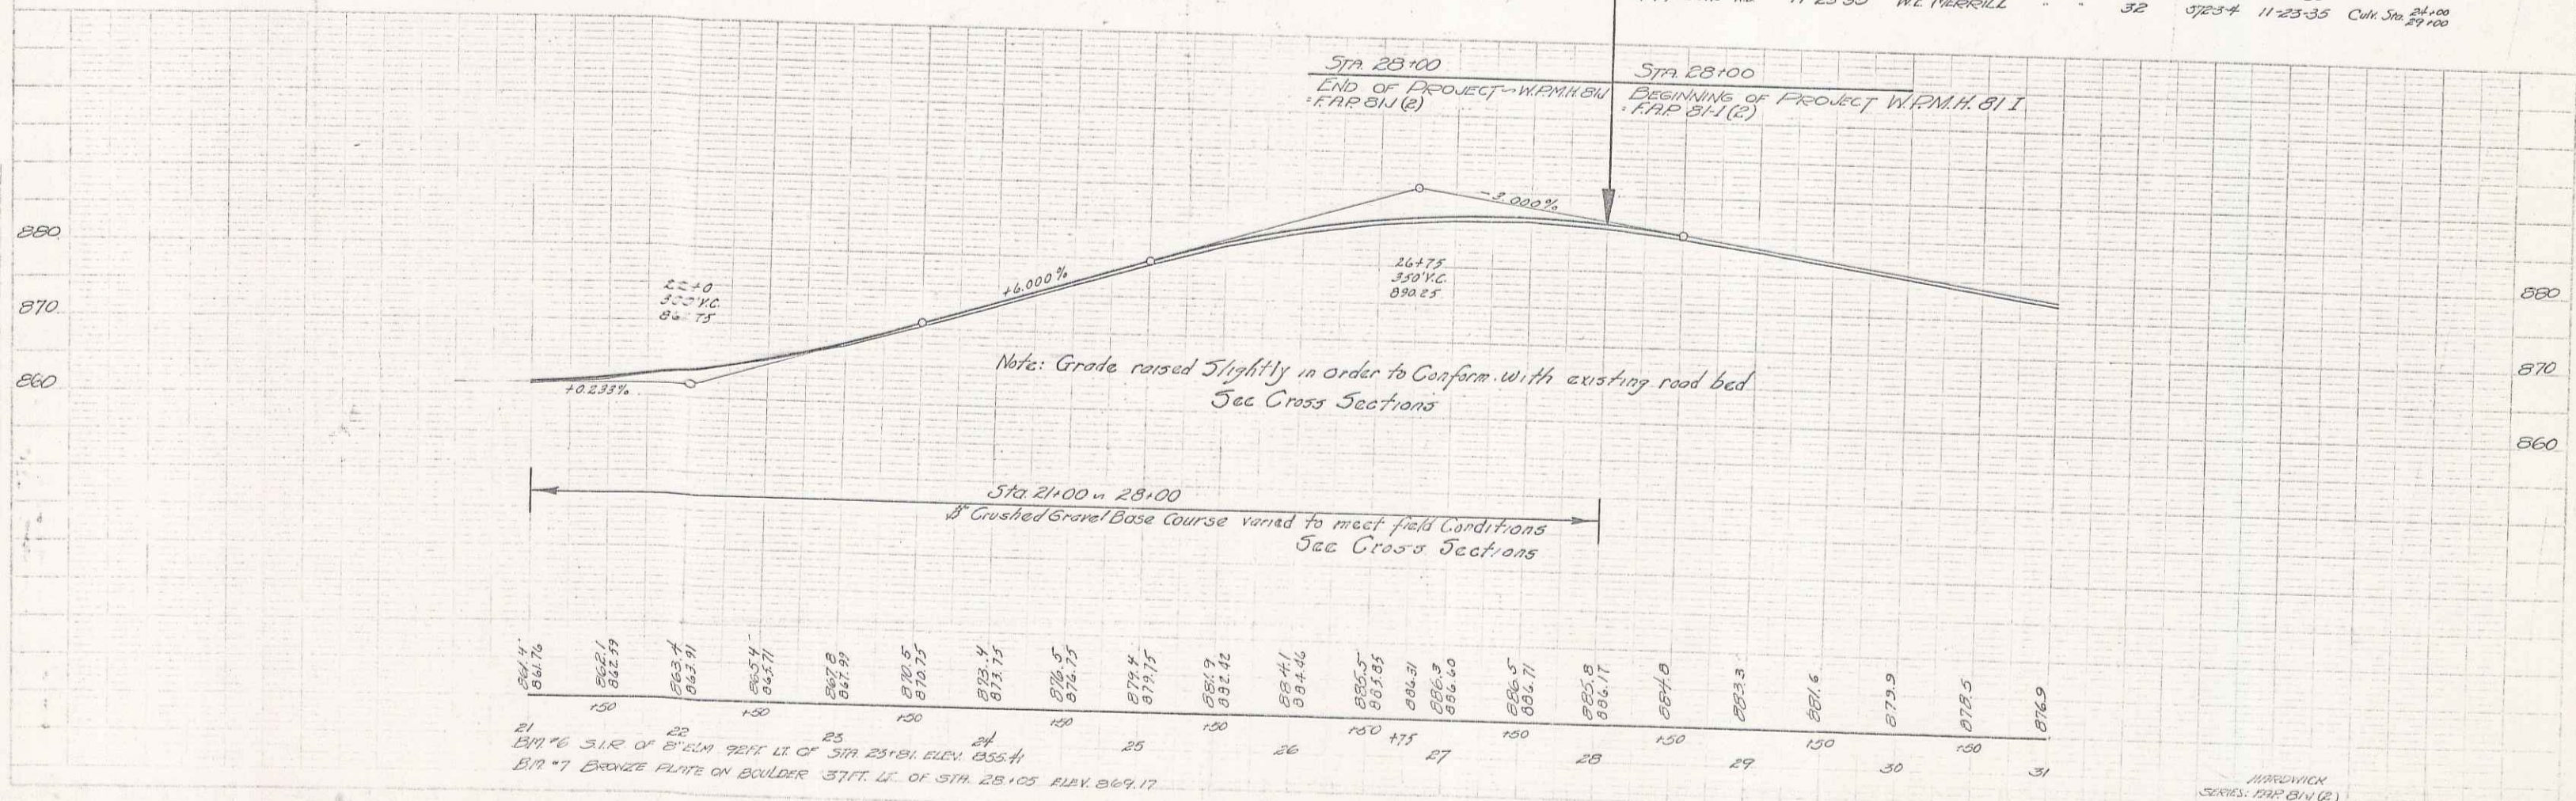 11-23-35 W.L. MERRILL " " 32 5723-4 11-23-35 Culv. Sta. 24+00
29+00
STA. 28+00
END OF PROJECT ~ W.P.M.H. 81J
= F.A.P. 81J (2)
STA. 28+00
BEGINNING OF PROJECT W.P.M.H. 81 I
= F.A.P. 81-I (2)
880
870
860
880
870
860
-3.000%
+6.000%
+0.233%
300' V.C.
26+75
350' V.C.
890.25
Note: Grade raised Slightly in order to Conform with existing road bed
See Cross Sections
Sta. 21+00 ~ 28+00
Crushed Gravel Base Course varied to meet field Conditions
See Cross Sections
861.4 862.1 863.4 865.4 867.8 870.5 873.4 876.5 879.4 881.9 884.1 885.5 886.31 886.3 886.5 885.8 884.8 883.3 881.6 879.9 878.5 876.9
861.76 862.59 863.91 865.71 867.99 870.75 873.75 876.75 879.75 882.42 884.46 885.85 886.60 886.71 886.17
21 +50 22 +50 23 +50 24 +50 25 +50 26 +50 +75 27 +50 28 +50 29 +50 30 +50 31
B.M. #6 S.I.R. OF 8" ELM 92FT. LT. OF STA. 23+81. ELEV. 855.41
B.M. #7 BRONZE PLATE ON BOULDER 37FT. LT. OF STA. 28+05 ELEV. 869.17
HARDWICK
SERIES: F.A.P. 81J (2)